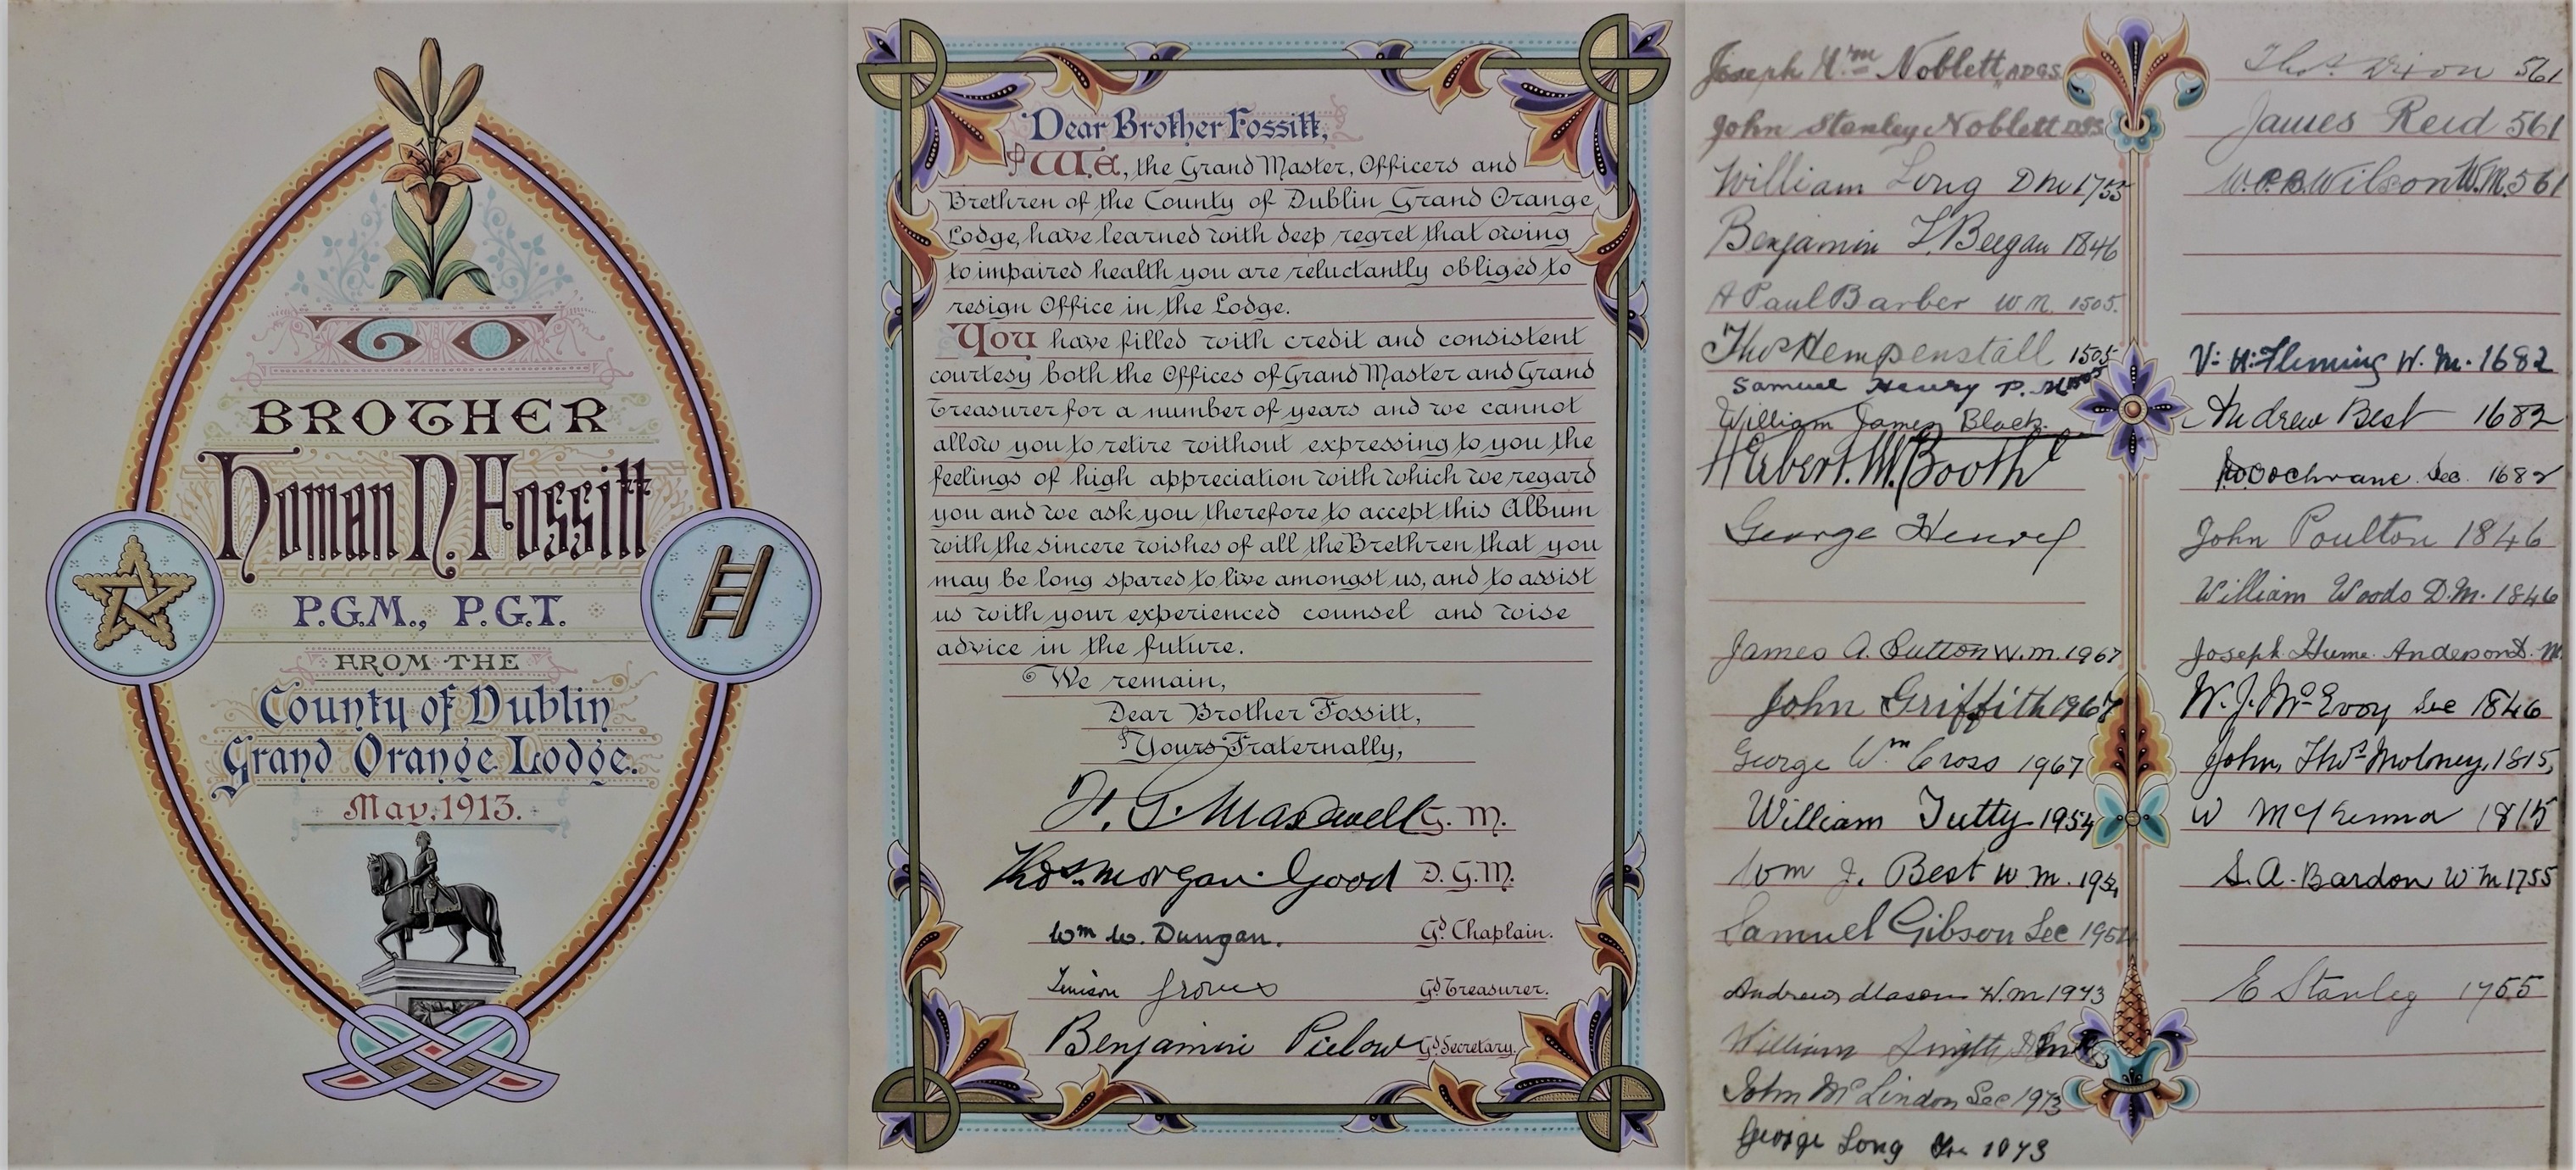 TO
BROTHER
Homan N. Fossitt
P.G.M., P.G.T.
FROM THE
County of Dublin
Grand Orange Lodge.
May, 1913.
Dear Brother Fossitt,
WE, the Grand Master, Officers and
Brethren of the County of Dublin Grand Orange
Lodge, have learned with deep regret that owing
to impaired health you are reluctantly obliged to
resign Office in the Lodge.
You have filled with credit and consistent
courtesy both the Offices of Grand Master and Grand
Treasurer for a number of years and we cannot
allow you to retire without expressing to you the
feelings of high appreciation with which we regard
you and we ask you therefore to accept this Album
with the sincere wishes of all the Brethren that you
may be long spared to live amongst us, and to assist
us with your experienced counsel and wise
advice in the future.
We remain,
Dear Brother Fossitt,
Yours Fraternally,
Maxwell G. M.
Thos. Morgan Good D. G. M.
Wm W. Dungan. Gd. Chaplain.
Groves Gd. Treasurer.
Benjamin Pielow Gd. Secretary.
Joseph Wm Noblett, A.D.G.S.
John Stanley Noblett D.G.S.
William Long DM 1755
Benjamin Beegan 1846
A Paul Barber W.M. 1505.
Thos Hempenstall 1505
Samuel Henry P. M 1505
William James Black
Herbert. M. Booth
George
James A. Sutton W.M. 1967
John Griffith 1967
George Wm Cross 1967
William Tutty 1954
Wm J. Best W.M. 1954
Samuel Gibson Sec 1954
Andrew Mason W.M 1973
William Smyth
John McLindon Sec 1973
George Long Tr. 1973
Thos. Dixon 561
James Reid 561
Wilson W.M. 561
V. H. Fleming W. M. 1682
Andrew Best 1682
Cochrane. Sec. 1682
John Poulton 1846
William Woods D.M. 1846
Joseph Hume Anderson
W. J. McEvoy Sec 1846
John, Thos Moloney, 1815,
W McKenna 1815
S. A. Bardon W.M 1755
E Stanley 1755